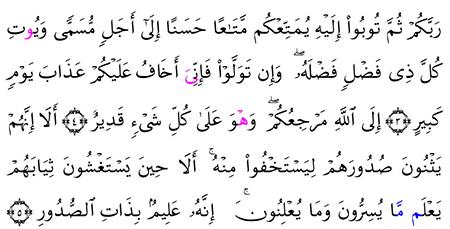 رَبَّكُمْ ثُمَّ تُوبُوٓا۟ إِلَيْهِ يُمَتِّعْكُم مَّتَـٰعًا حَسَنًا إِلَىٰٓ أَجَلٍۢ مُّسَمًّى وَيُوتِ
كُلَّ ذِى فَضْلٍۢ فَضْلَهُۥ ۖ وَإِن تَوَلَّوْا۟ فَإِنِّىَ أَخَافُ عَلَيْكُمْ عَذَابَ يَوْمٍۢ
كَبِيرٍ ﴿٣﴾ إِلَى ٱللَّهِ مَرْجِعُكُمْ ۖ وَهْوَ عَلَىٰ كُلِّ شَىْءٍۢ قَدِيرٌ ﴿٤﴾ أَلَآ إِنَّهُمْ
يَثْنُونَ صُدُورَهُمْ لِيَسْتَخْفُوا۟ مِنْهُ ۚ أَلَا حِينَ يَسْتَغْشُونَ ثِيَابَهُمْ
يَعْلَم مَّا يُسِرُّونَ وَمَا يُعْلِنُونَ ۚ إِنَّهُۥ عَلِيمٌۢ بِذَاتِ ٱلصُّدُورِ ﴿٥﴾